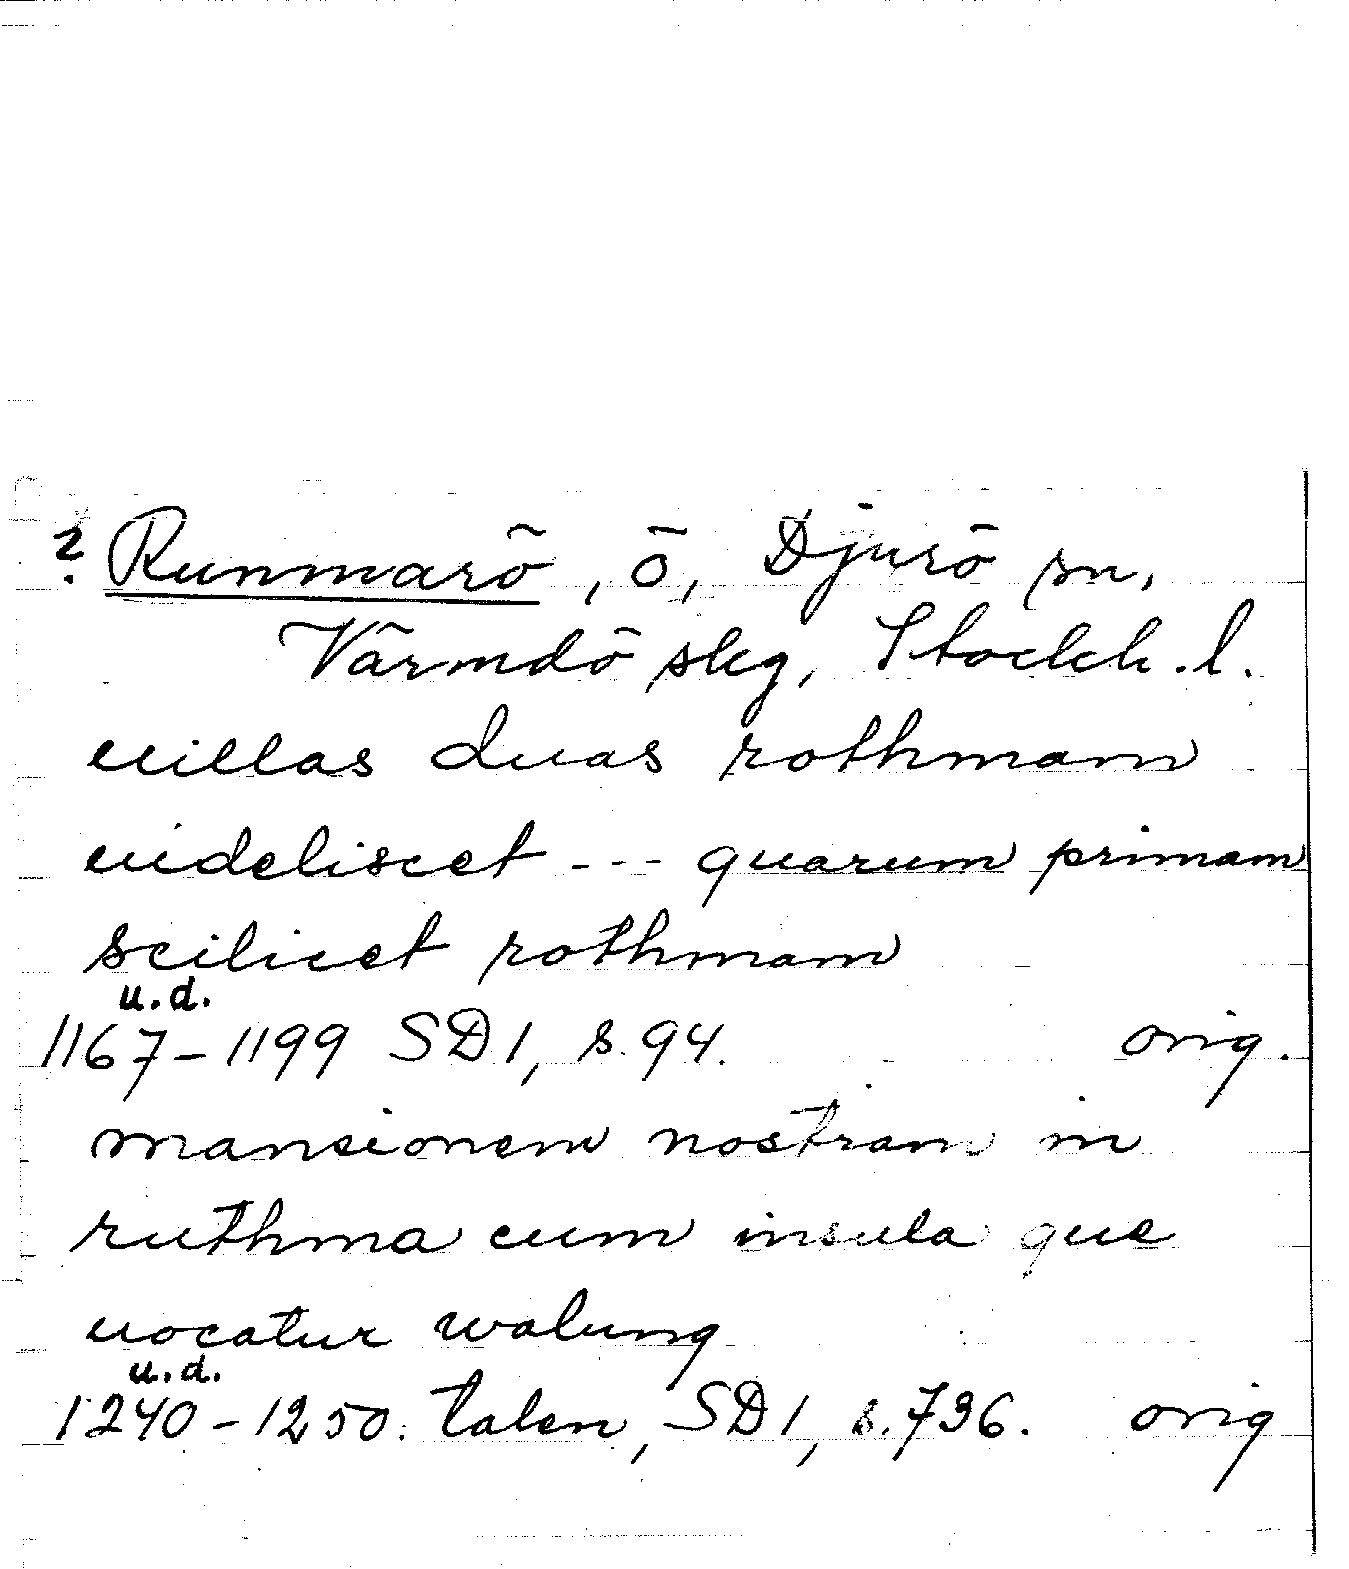 ? Runmarö, ö, Djurö sn,
Värmdö skg, Stockh. l.
uillas duas rothmam
uideliscet --- quarum primam
scilicet rothmam
u.d.
1167-1199 SD 1, s. 94. orig.
mansionem nostram in
ruthma cum insula que
uocatur walung
u.d.
1240-1250. talen, SD 1, s. 736. orig